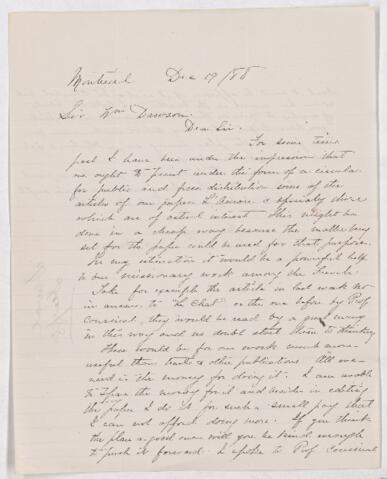 Montreal Dec 19/88
Sir Wm Dawson.
Dear Sir.
For some time
past I have been under the impression that
we ought to print under the form of a circular
for public and free distribution some of the
articles of our paper L'Aurore, & specially those
which are of actual interest. This might be
done in a cheap way because the matter being
set for the paper could be used for that purpose.
In my estimation it would be a powerful help
to our missionary work among the French
Take for example the article in last week no
in answer to "Le Chat" or the one before by Prof
Coussirat, they would be read by a great many
in this way and no doubt start them to thinking
These would be for our work much more
useful than tracts & other publications. All we
need is the money for doing it. I am unable
to spare the money for it and besides in editing
the paper I do it for such a small pay that
I can not afford doing more. If you think
the plan a good one will you be kind enough
to push it forward. I spoke to Prof Coussirat